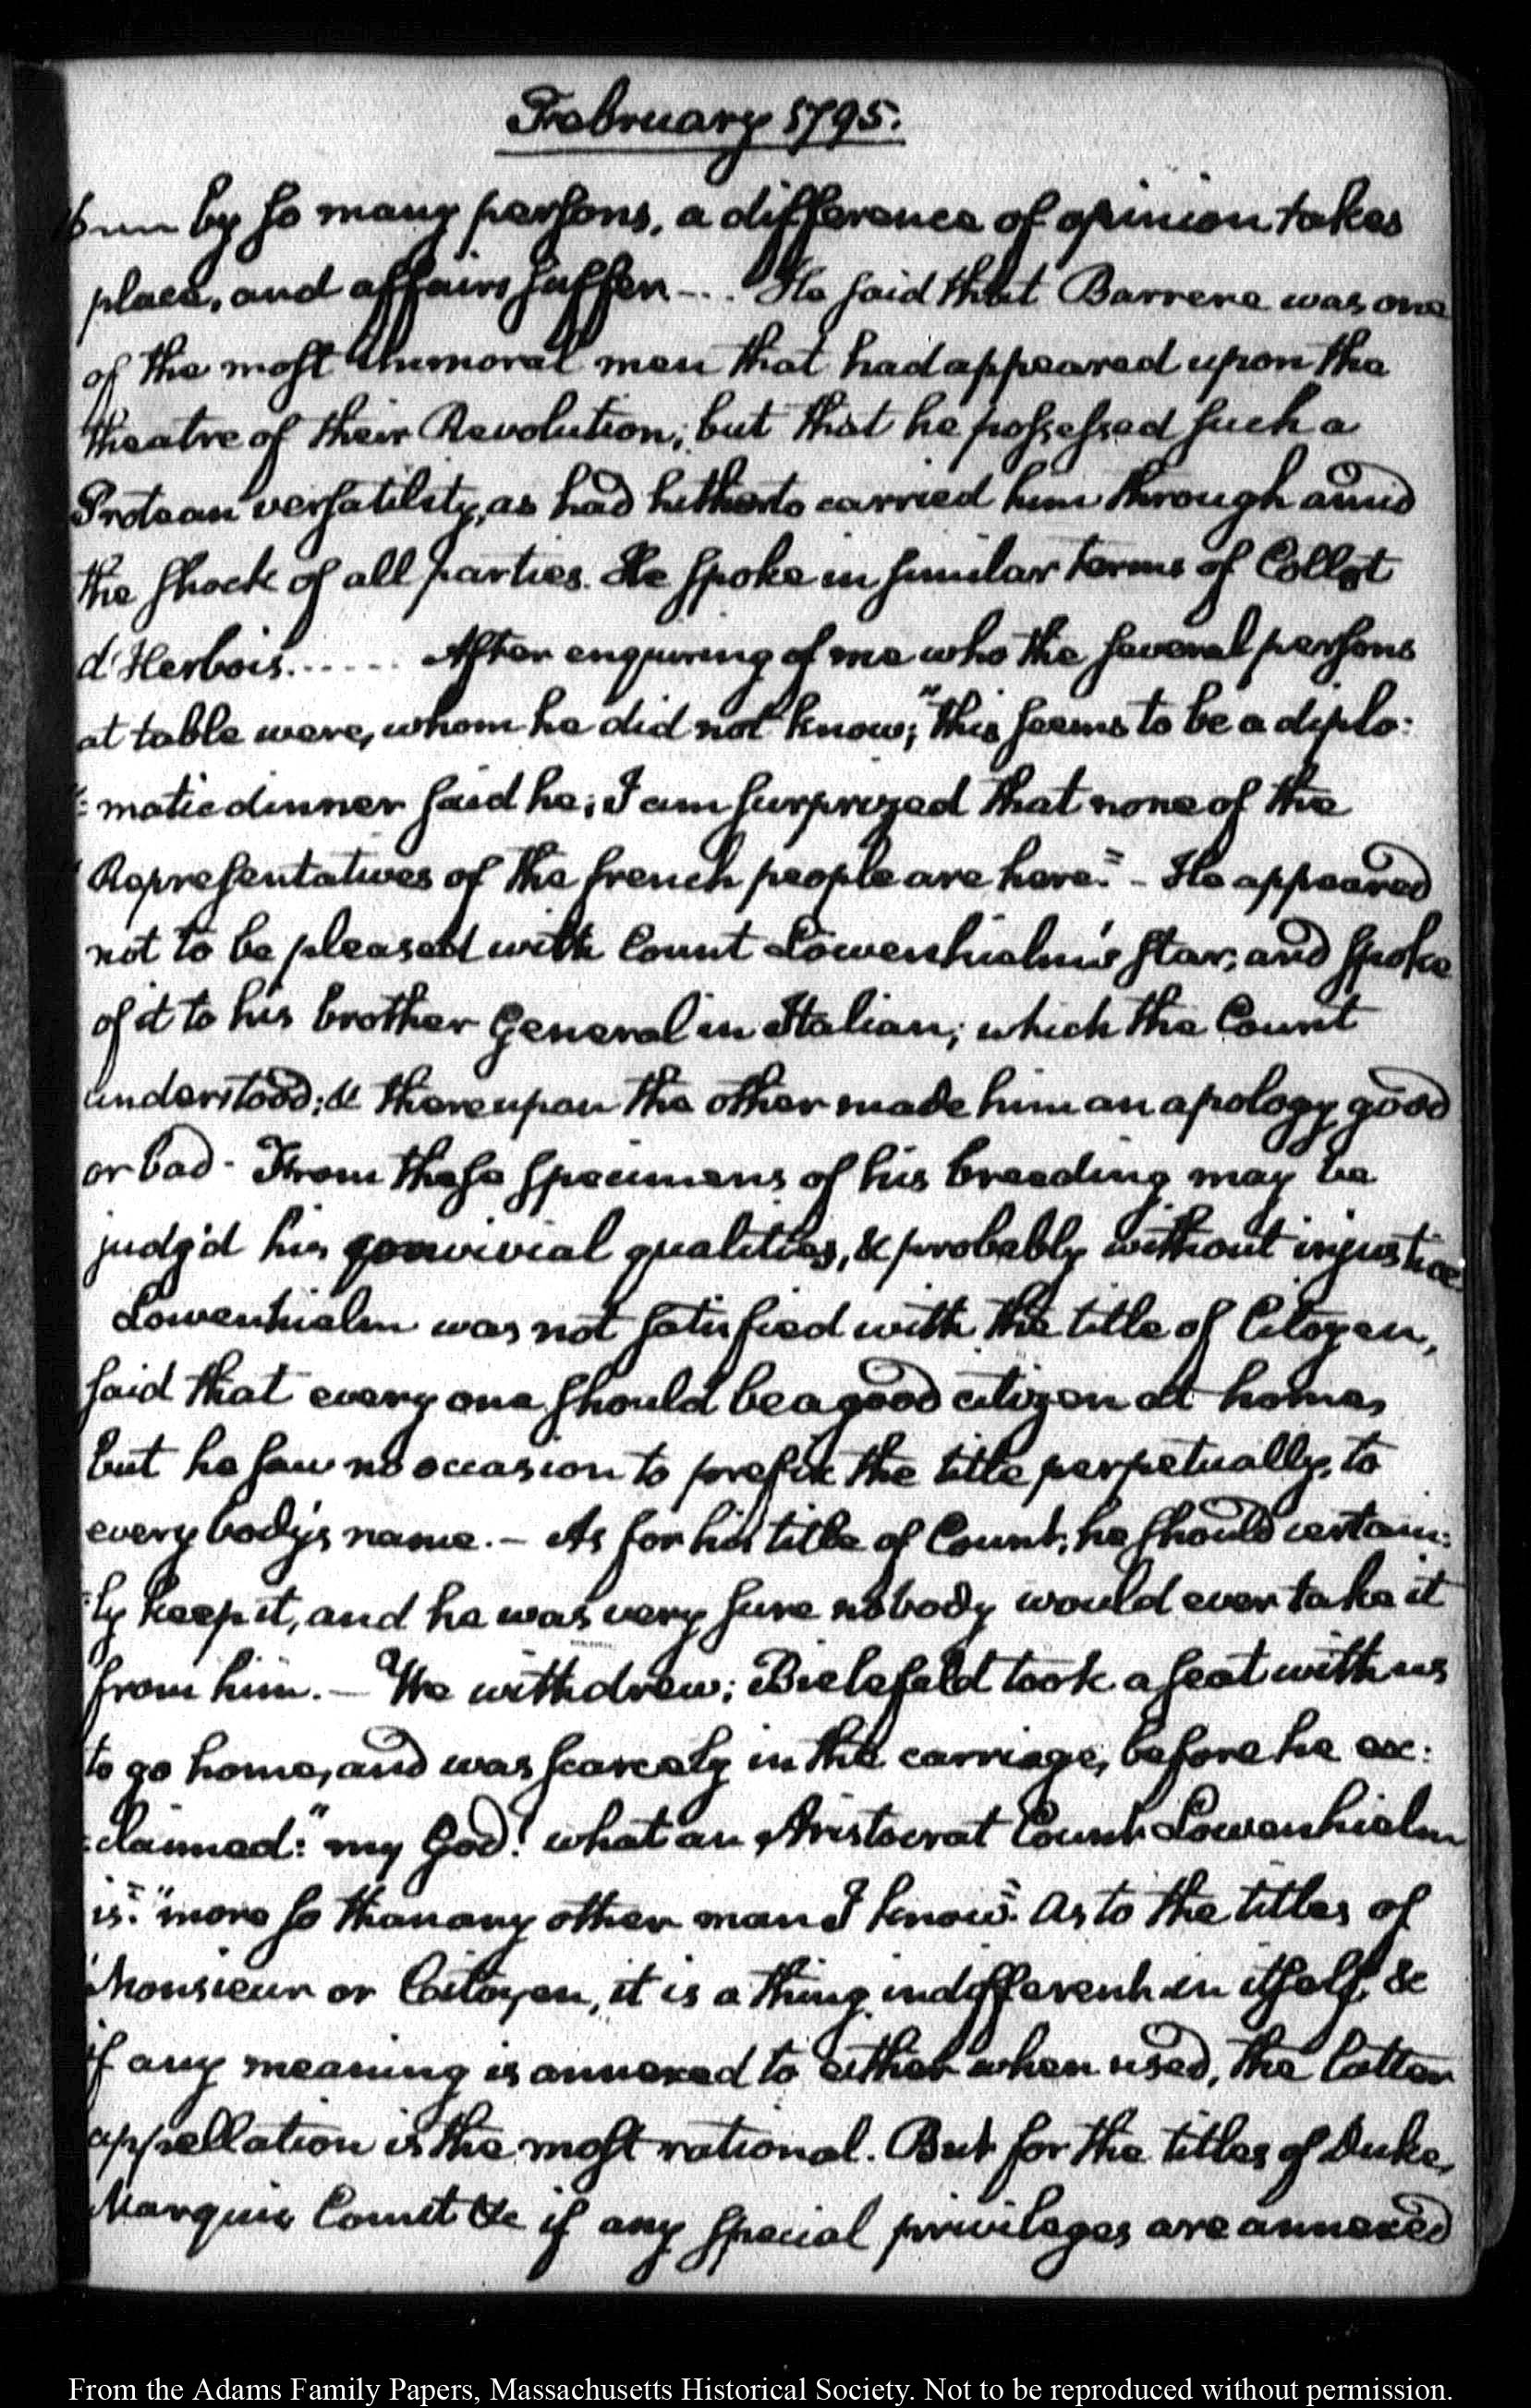 February 1795.
by so many persons, a difference of opinion takes
place, and affairs suffer -... He said that Barrere was one
of the most immoral men that had appeared upon the
theatre of their Revolution; but that he possessed such a
Protean versatility, as had hitherto carried him through amid
the shock of all parties. He spoke in similar terms of Collot
d'Herbois...... After enquiring of me who the several persons
at table were, whom he did not know; "this seems to be a diplo:
": matic dinner said he; I am surprized that none of the
" Representatives of the french people are here." - He appeared
not to be pleased with Count Lowenhielm's star, and spoke
of it to his brother General in Italian; which the Count
understood; & thereupon the other made him an apology good
or bad - From these specimens of his breeding may be
judg'd his convivial qualities, & probably without injustice
Lowenhielm was not satisfied with the title of Citoyen,
said that every one should be a good citizen at home,
but he saw no occasion to prefix the title perpetually, to
every body's name. - As for his title of Count, he should certain:
:ly keep it, and he was very sure nobody would ever take it
from him. - We withdrew; Bielefeld took a seat with us
to go home, and was scarcely in the carriage, before he ex:
:claimed: "my God! what an Aristocrat Count Lowenhielm
is." "more so than any other man I know." As to the titles of
Monsieur or Citoyen, it is a thing indifferent in itself, &
if any meaning is annexed to either when used, the latter
appellation is the most rational. But for the titles of Duke,
Marquis Count &c if any special privileges are annexed
From the Adams Family Papers, Massachusetts Historical Society. Not to be reproduced without permission.